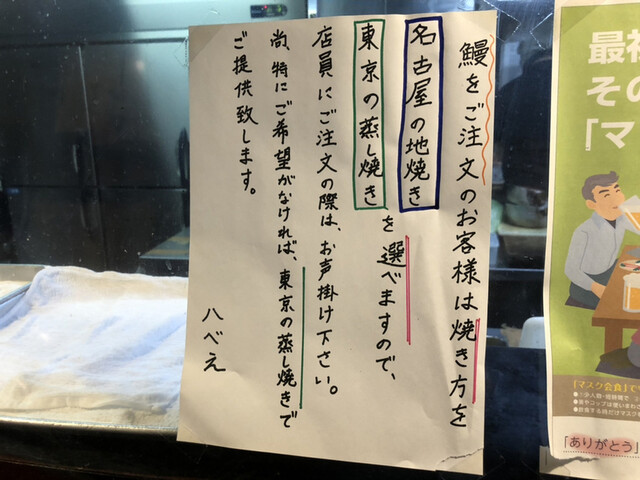 鰻をご注文のお客様は焼き方を
名古屋の地焼き
東京の蒸し焼きを選べますので、
店員にご注文の際は、お声掛け下さい。
尚、特にご希望がなければ、東京の蒸し焼きで
ご提供致します。
八べえ
最初
その
「マ
「マスク会食」で
「ありがとう」